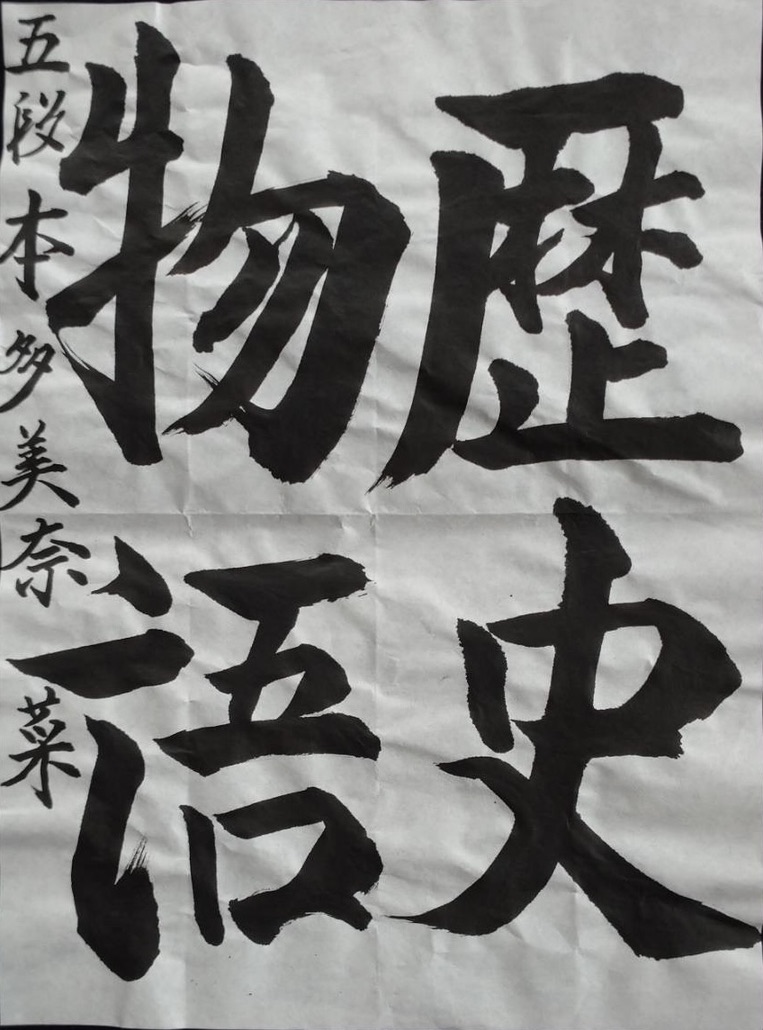 歴史
物語
五段 本多美奈菜